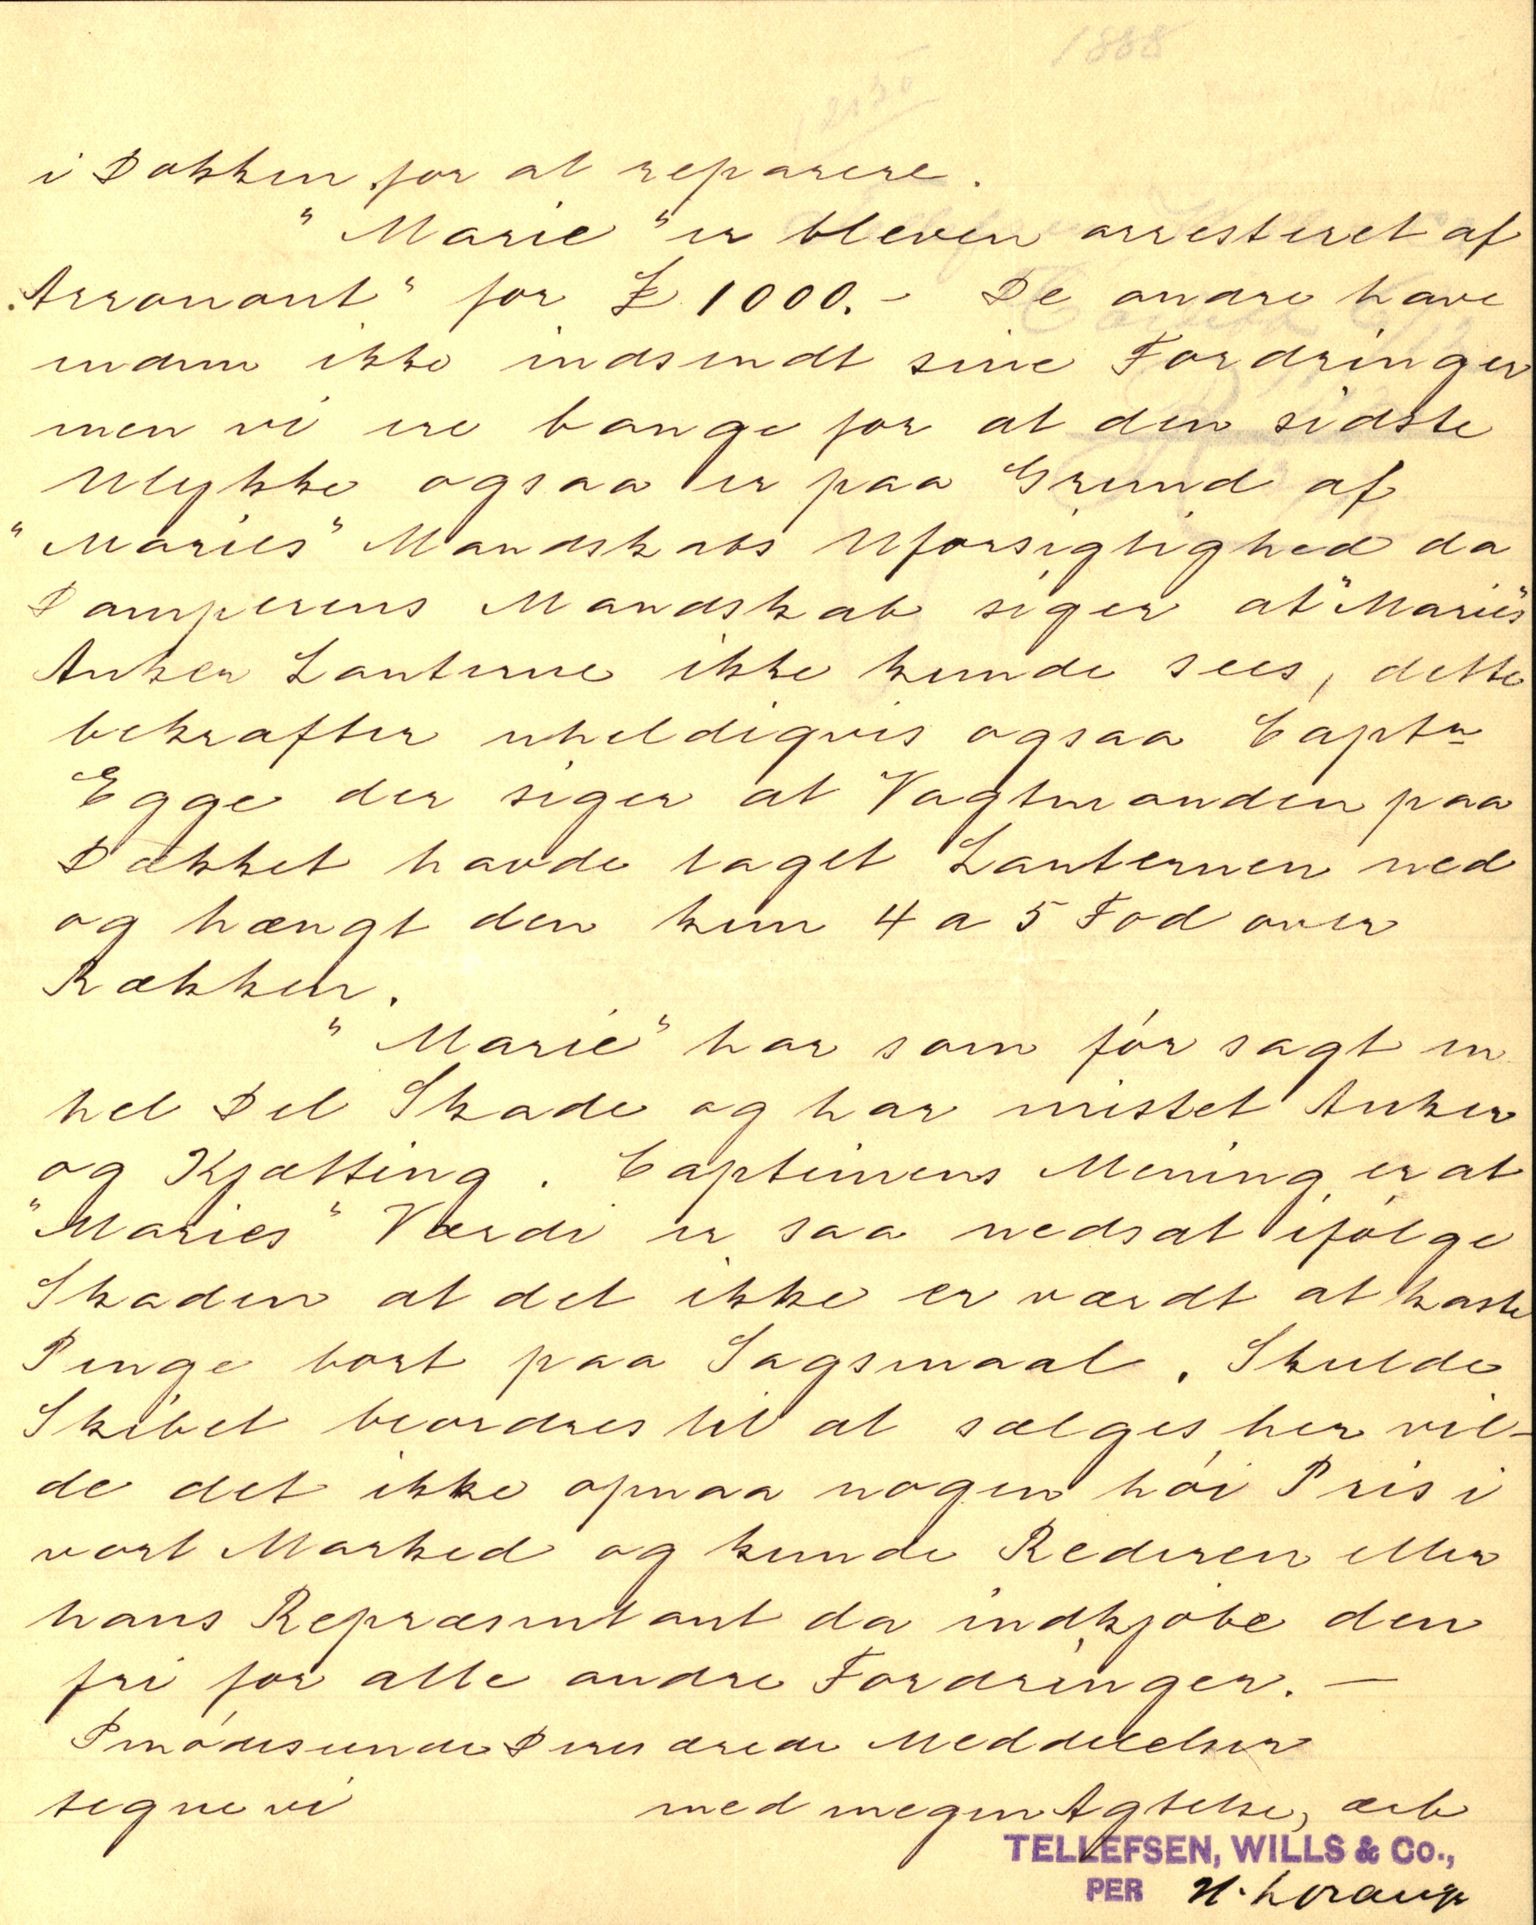 1888
i Dokken for at reparere.
"Marie" er bleven arresteret af
"Arronant" for £ 1000.- De andre have
endnu ikke indsendt sine Fordringer
men vi ere bange for at den sidste
Ulykke ogsaa er paa Grund af
"Maries" Mandskabs Uforsigtighed da
Damperens Mandskab siger at "Maries"
Anker Lanterne ikke kunde sees, dette
bekræfter uheldigvis ogsaa Captn
Egge der siger at Vagtmanden paa
Dækket havde taget Lanternen ned
og hængt den kun 4 a 5 Fod over
Rækken.
"Marie" har som før sagt en
hel Del Skade og har mistet Anker
og Kjætting. Capteinens Mening er at
"Maries" Værdi er saa nedsat ifølge
Skaden at det ikke er værdt at kaste
Penge bort paa Sagsmaal. Skulde
Skibet beordres til at sælges her vil-
de det ikke opnaa nogen høi Pris i
vort Marked og kunde Rederen eller
hans Repræsentant da indkjøbe den
fri for alle andre Fordringer. —
Imødeseende Deres ærede Meddelelser
tegne vi med megen Agtelse, ærb
TELLEFSEN, WILLS & Co.,
PER